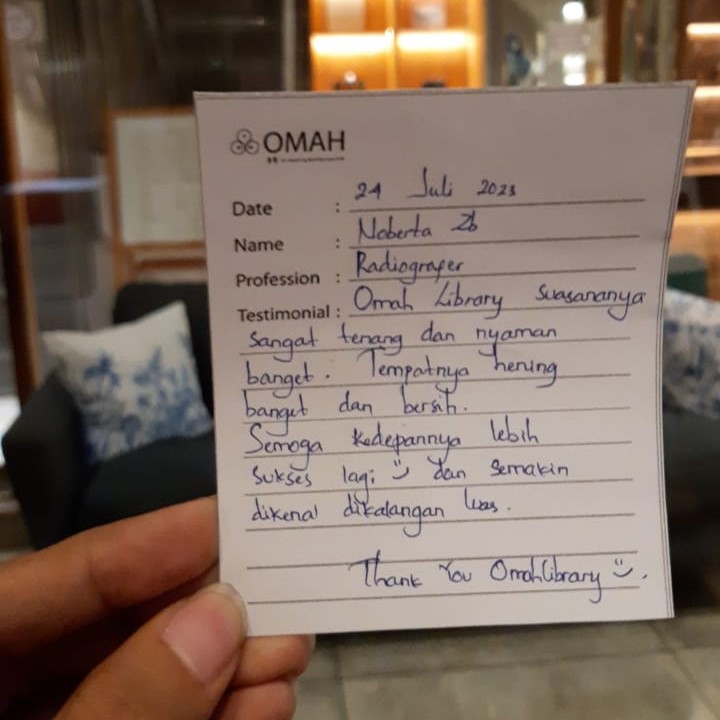 OMAH
Date : 24 Juli 2023
Name : Noberta Zb
Profession : Radiografer
Testimonial : Omah Library suasananya
sangat tenang dan nyaman
banget. Tempatnya hening
banget dan bersih.
Semoga kedepannya lebih
sukses lagi dan semakin
dikenal dikalangan luas.
Thank You OmahLibrary